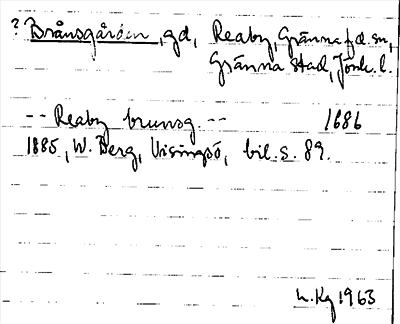 ? Brånsgården, gd, Reaby, Gränna f.d. sn,
Gränna Stad, Jönk. l.
-- Reaby brunsg. -- 1686
1885, W. Berg, Visingsö, bil. s. 89.
h. Kg 1963